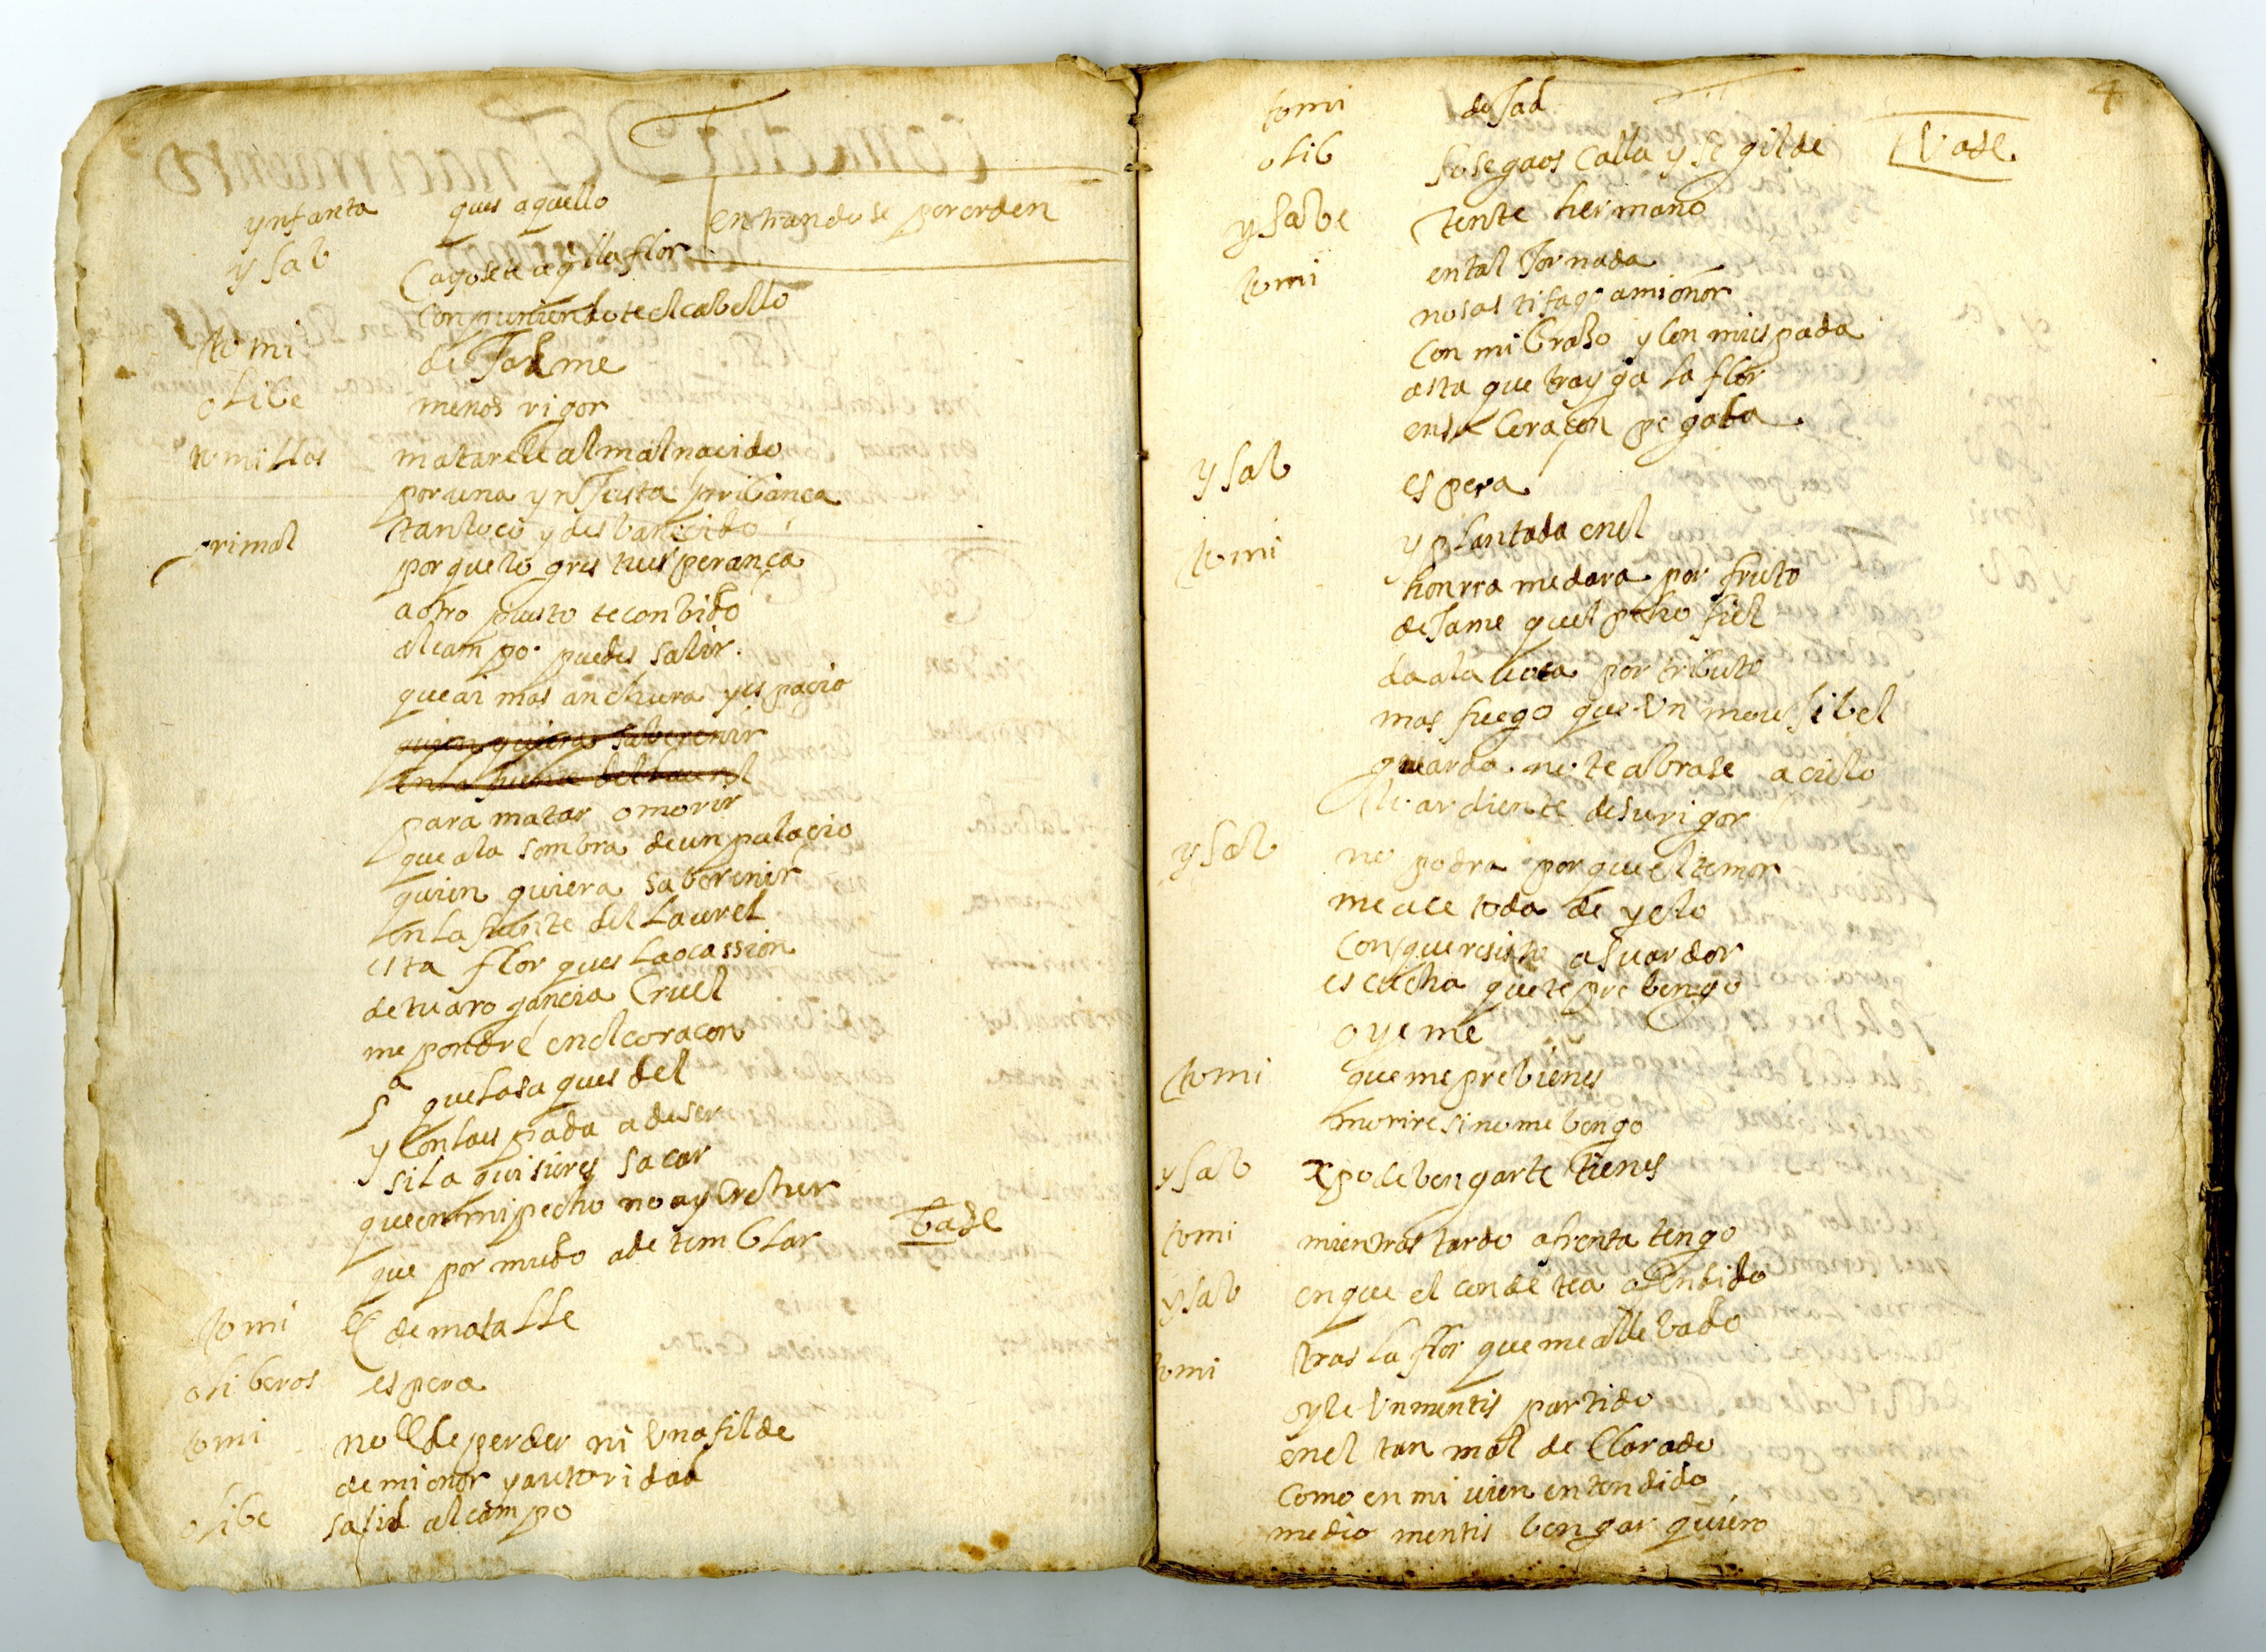 ynfanta ques aquello
entrandose por orden
ysab Cayosete aqlla flor
Conpuniendote el cabello
tomi deJadme
olibe menos rigor
tomillas matarele al mal nacido
por una ynJusta pribanca
rimal tan loco y desbanecido
porque lo gres tu esperança
a otro puesto te conbido
al campo puedes salir
que ai mas anchura y espacio
quien quiera saber enir
en la fuente del laurel
para matar o morir
que ala sombra de un palacio
quien quiera saber enir
en la fuente del Laurel
esta flor ques la ocassion
de tu arogancia Cruel
me pondré en el coracon
que ques del
y Con la espada a de ser
si la quisieres sacar
que en mi pecho no ay
que por miedo a de temblar base
tomi e de matalle
oliberos espera
tomi no e de perder ni Una filde
de mi onor y autoridad
olibe salid al campo
4
tomi deJad
olib sosegaos Calla y Vase
ysabe tente hermano
tomi en tal Jornada
no sastifago a mi onor
Con mi braso y Con mi espada
asta que trayga la flor
en su Coraçon pegada
ysab espera
tomi y plantada en el
honrra me dara por fruto
deJame quel pecho fiel
da a la boca por tributo
mas fuego que Un monsibel
guarda no te abrase a cielo
ardiente de su rigor
ysab no podra por que el temor
me ace toda de yelo
Con que resisto a su ardor
escucha que te prebengo
oyeme
tomi que me prebienes
morire si no me bengo
ysab tpo de bengarte tienes
tomi mientras tardo afrenta tengo
ysab en que el conde te a ofendido
tomi tras la flor que me a llebado
oyle Un mentis partido
en el tan mal declarado
Como en mi vien entendido
medio mentis bengar quiero